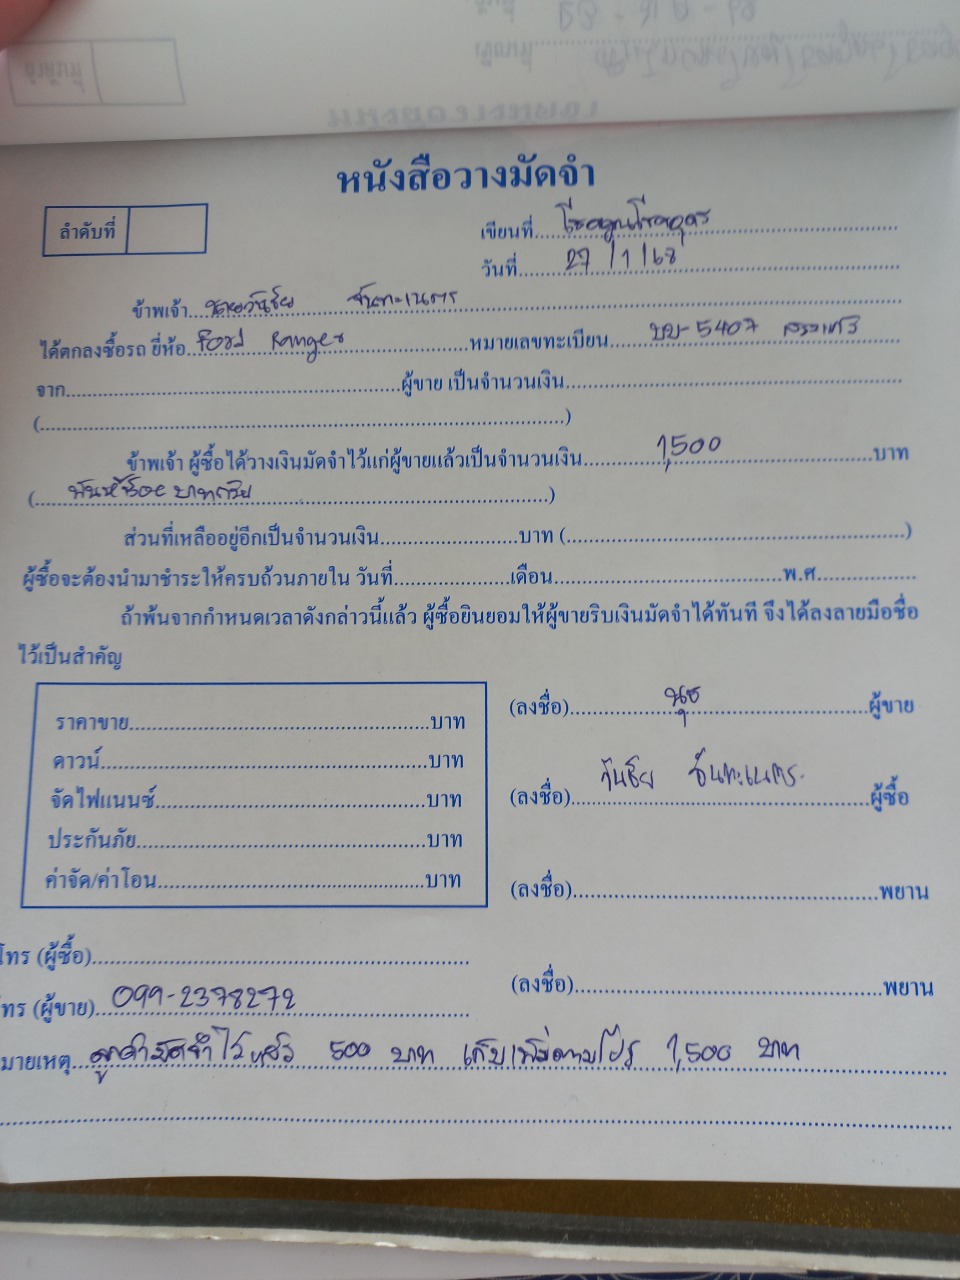 หนังสือวางมัดจำ
ลำดับที่
เขียนที่
วันที่ 27/1/68
ข้าพเจ้า นายวันชัย จันทะเนตร
ได้ตกลงซื้อรถ ยี่ห้อ Ford Ranger หมายเลขทะเบียน บบ-5407 สระแก้ว
จาก ผู้ขาย เป็นจำนวนเงิน
( )
ข้าพเจ้า ผู้ซื้อได้วางเงินมัดจำไว้แก่ผู้ขายแล้วเป็นจำนวนเงิน 1,500 บาท
( พันห้าร้อยบาทถ้วน )
ส่วนที่เหลืออยู่อีกเป็นจำนวนเงิน บาท ( )
ผู้ซื้อจะต้องนำมาชำระให้ครบถ้วนภายใน วันที่ เดือน พ.ศ.
ถ้าพ้นจากกำหนดเวลาดังกล่าวนี้แล้ว ผู้ซื้อยินยอมให้ผู้ขายริบเงินมัดจำได้ทันที จึงได้ลงลายมือชื่อ
ไว้เป็นสำคัญ
ราคาขาย บาท
ดาวน์ บาท
จัดไฟแนนซ์ บาท
ประกันภัย บาท
ค่าจัด/ค่าโอน บาท
(ลงชื่อ) นุช ผู้ขาย
(ลงชื่อ) วันชัย จันทะเนตร ผู้ซื้อ
(ลงชื่อ) พยาน
(ลงชื่อ) พยาน
โทร (ผู้ซื้อ)
โทร (ผู้ขาย) 099-2378272
มายเหตุ ลูกค้ามัดจำไว้แล้ว 500 บาท เก็บเพิ่มตามโปร 1,500 บาท